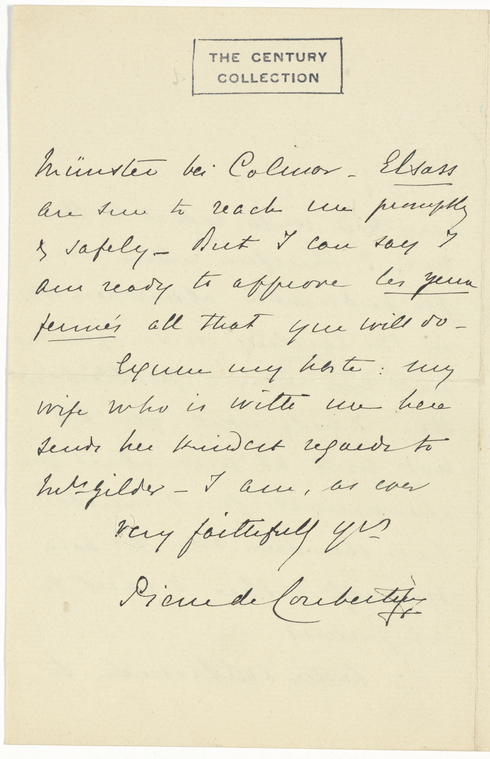 THE CENTURY
COLLECTION
Münster bei Colmar - Elsass
are sure to reach me promptly
& safely - But I can say I
am ready to approve les yeux
fermés all that you will do -
Excuse my haste: my
wife who is with me here
sends her kindest regards to
Mrs Gilder - I am, as ever
very faithfully yrs
Pierre de Coubertin